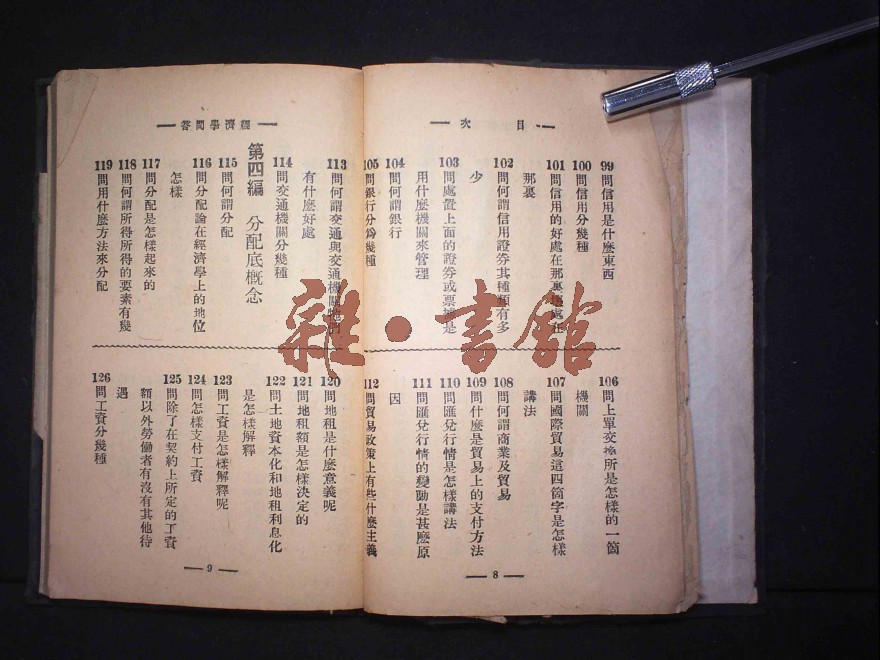 目次
99問信用是什麼東西
100問信用分幾種
101問信用的好處在那裏壞處在
那裏
102問何謂信用證券其種類有多
少
103問處置上面的證券或票據是
用什麼機關來管理
104問何謂銀行
105問銀行分爲幾種
106問上單交換所是怎樣的一箇
機關
107問國際貿易這四箇字是怎樣
講法
108問何謂商業及貿易
109問什麼是貿易上的支付方法
110問匯兌行情是怎樣講法
111問匯兌行情的變動是甚麼原
因
112問貿易政策上有些什麼主義
8
經濟學問答
113問何謂交通與交通機關牠們
有什麼好處
114問交通機關分幾種
第四編 分配底概念
115問何謂分配
116問分配論在經濟學上的地位
怎樣
117問分配是怎樣起來的
118問何謂所得所得的要素有幾
119問用什麼方法來分配
120問地租是什麼意義呢
121問地租額是怎樣決定的
122問土地資本化和地租利息化
是怎樣解釋
123問工資是怎樣解釋呢
124問怎樣支付工資
125問除了在契約上所定的工資
額以外勞働者有沒有其他待
遇
126問工資分幾種
9
雜·書館